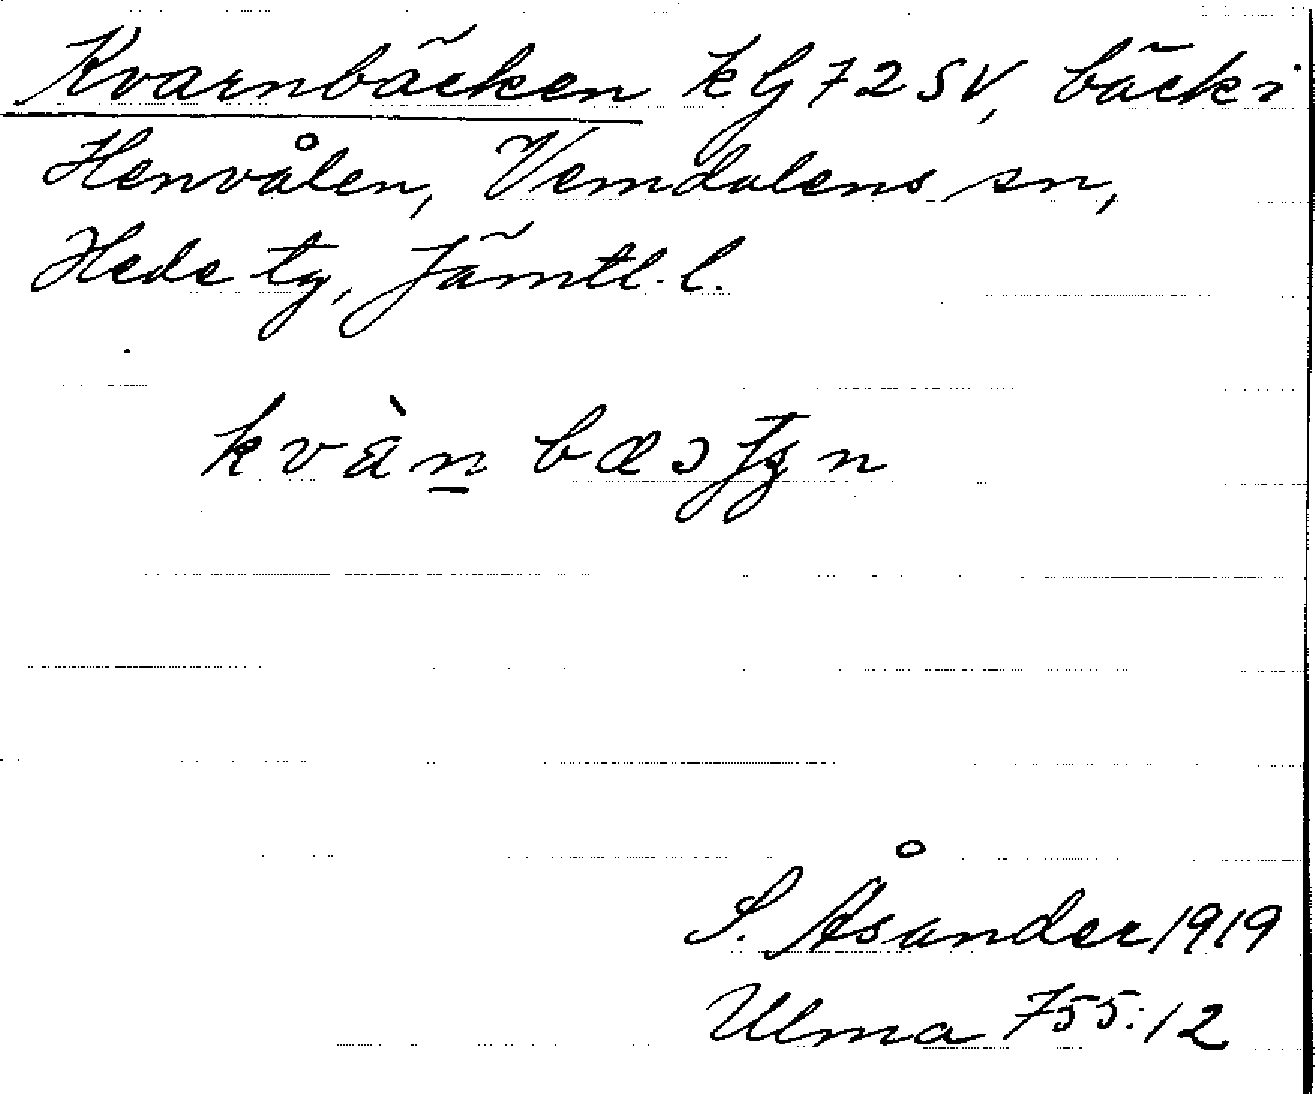 Kvarnbäcken kG 72 SV, bäck i
Henvålen, Vemdalens sn,
Hede tg, Jämtl. l.
S. Åsander 1919
Ulma 755:12